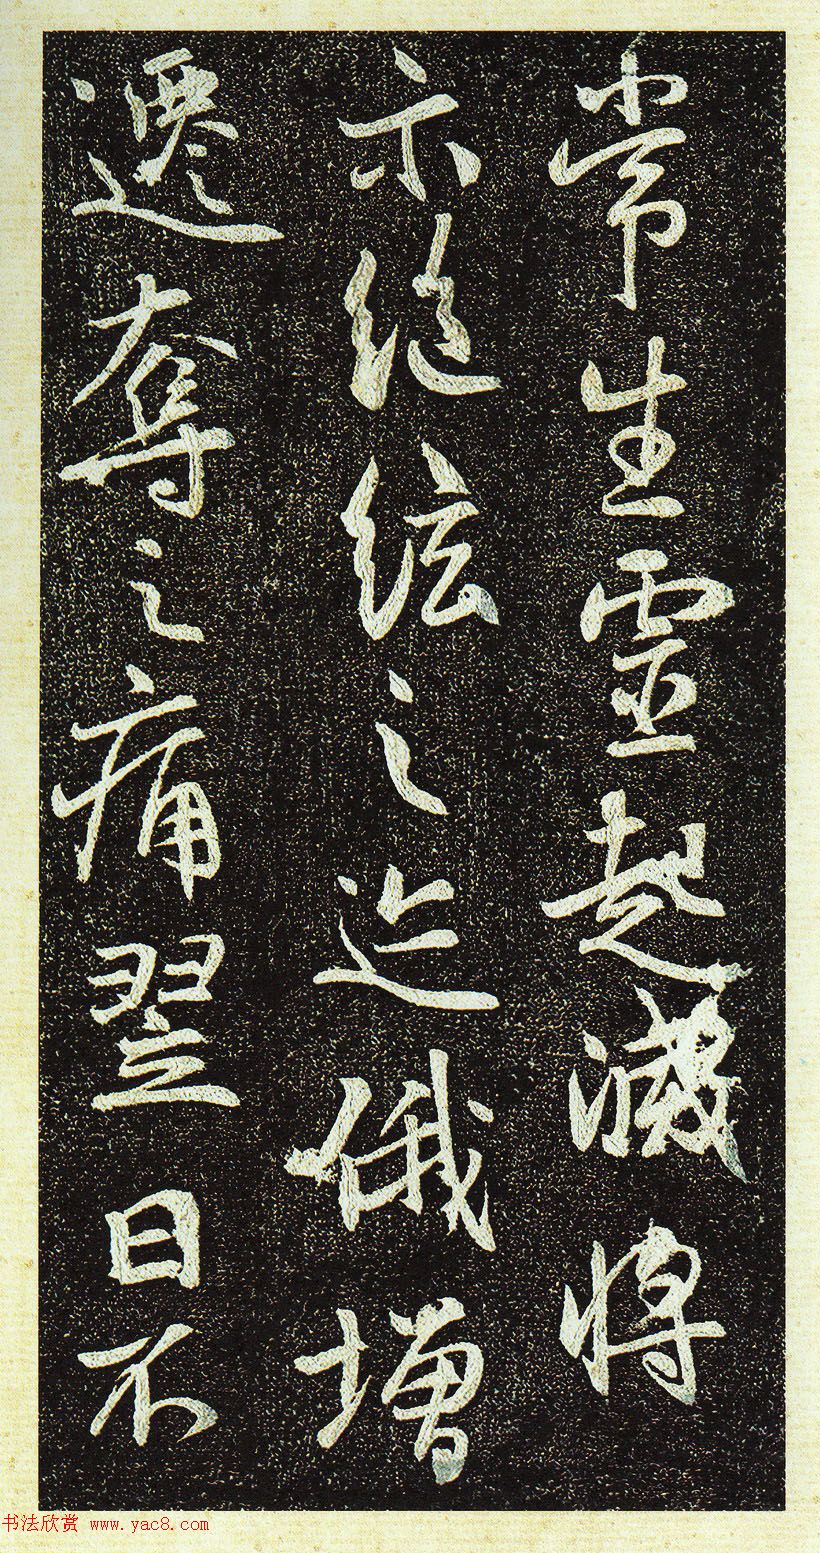 常生靈起滅將
示絃之迹俄增
遷奪之痛翌日不
书法欣赏 www.yac8.com